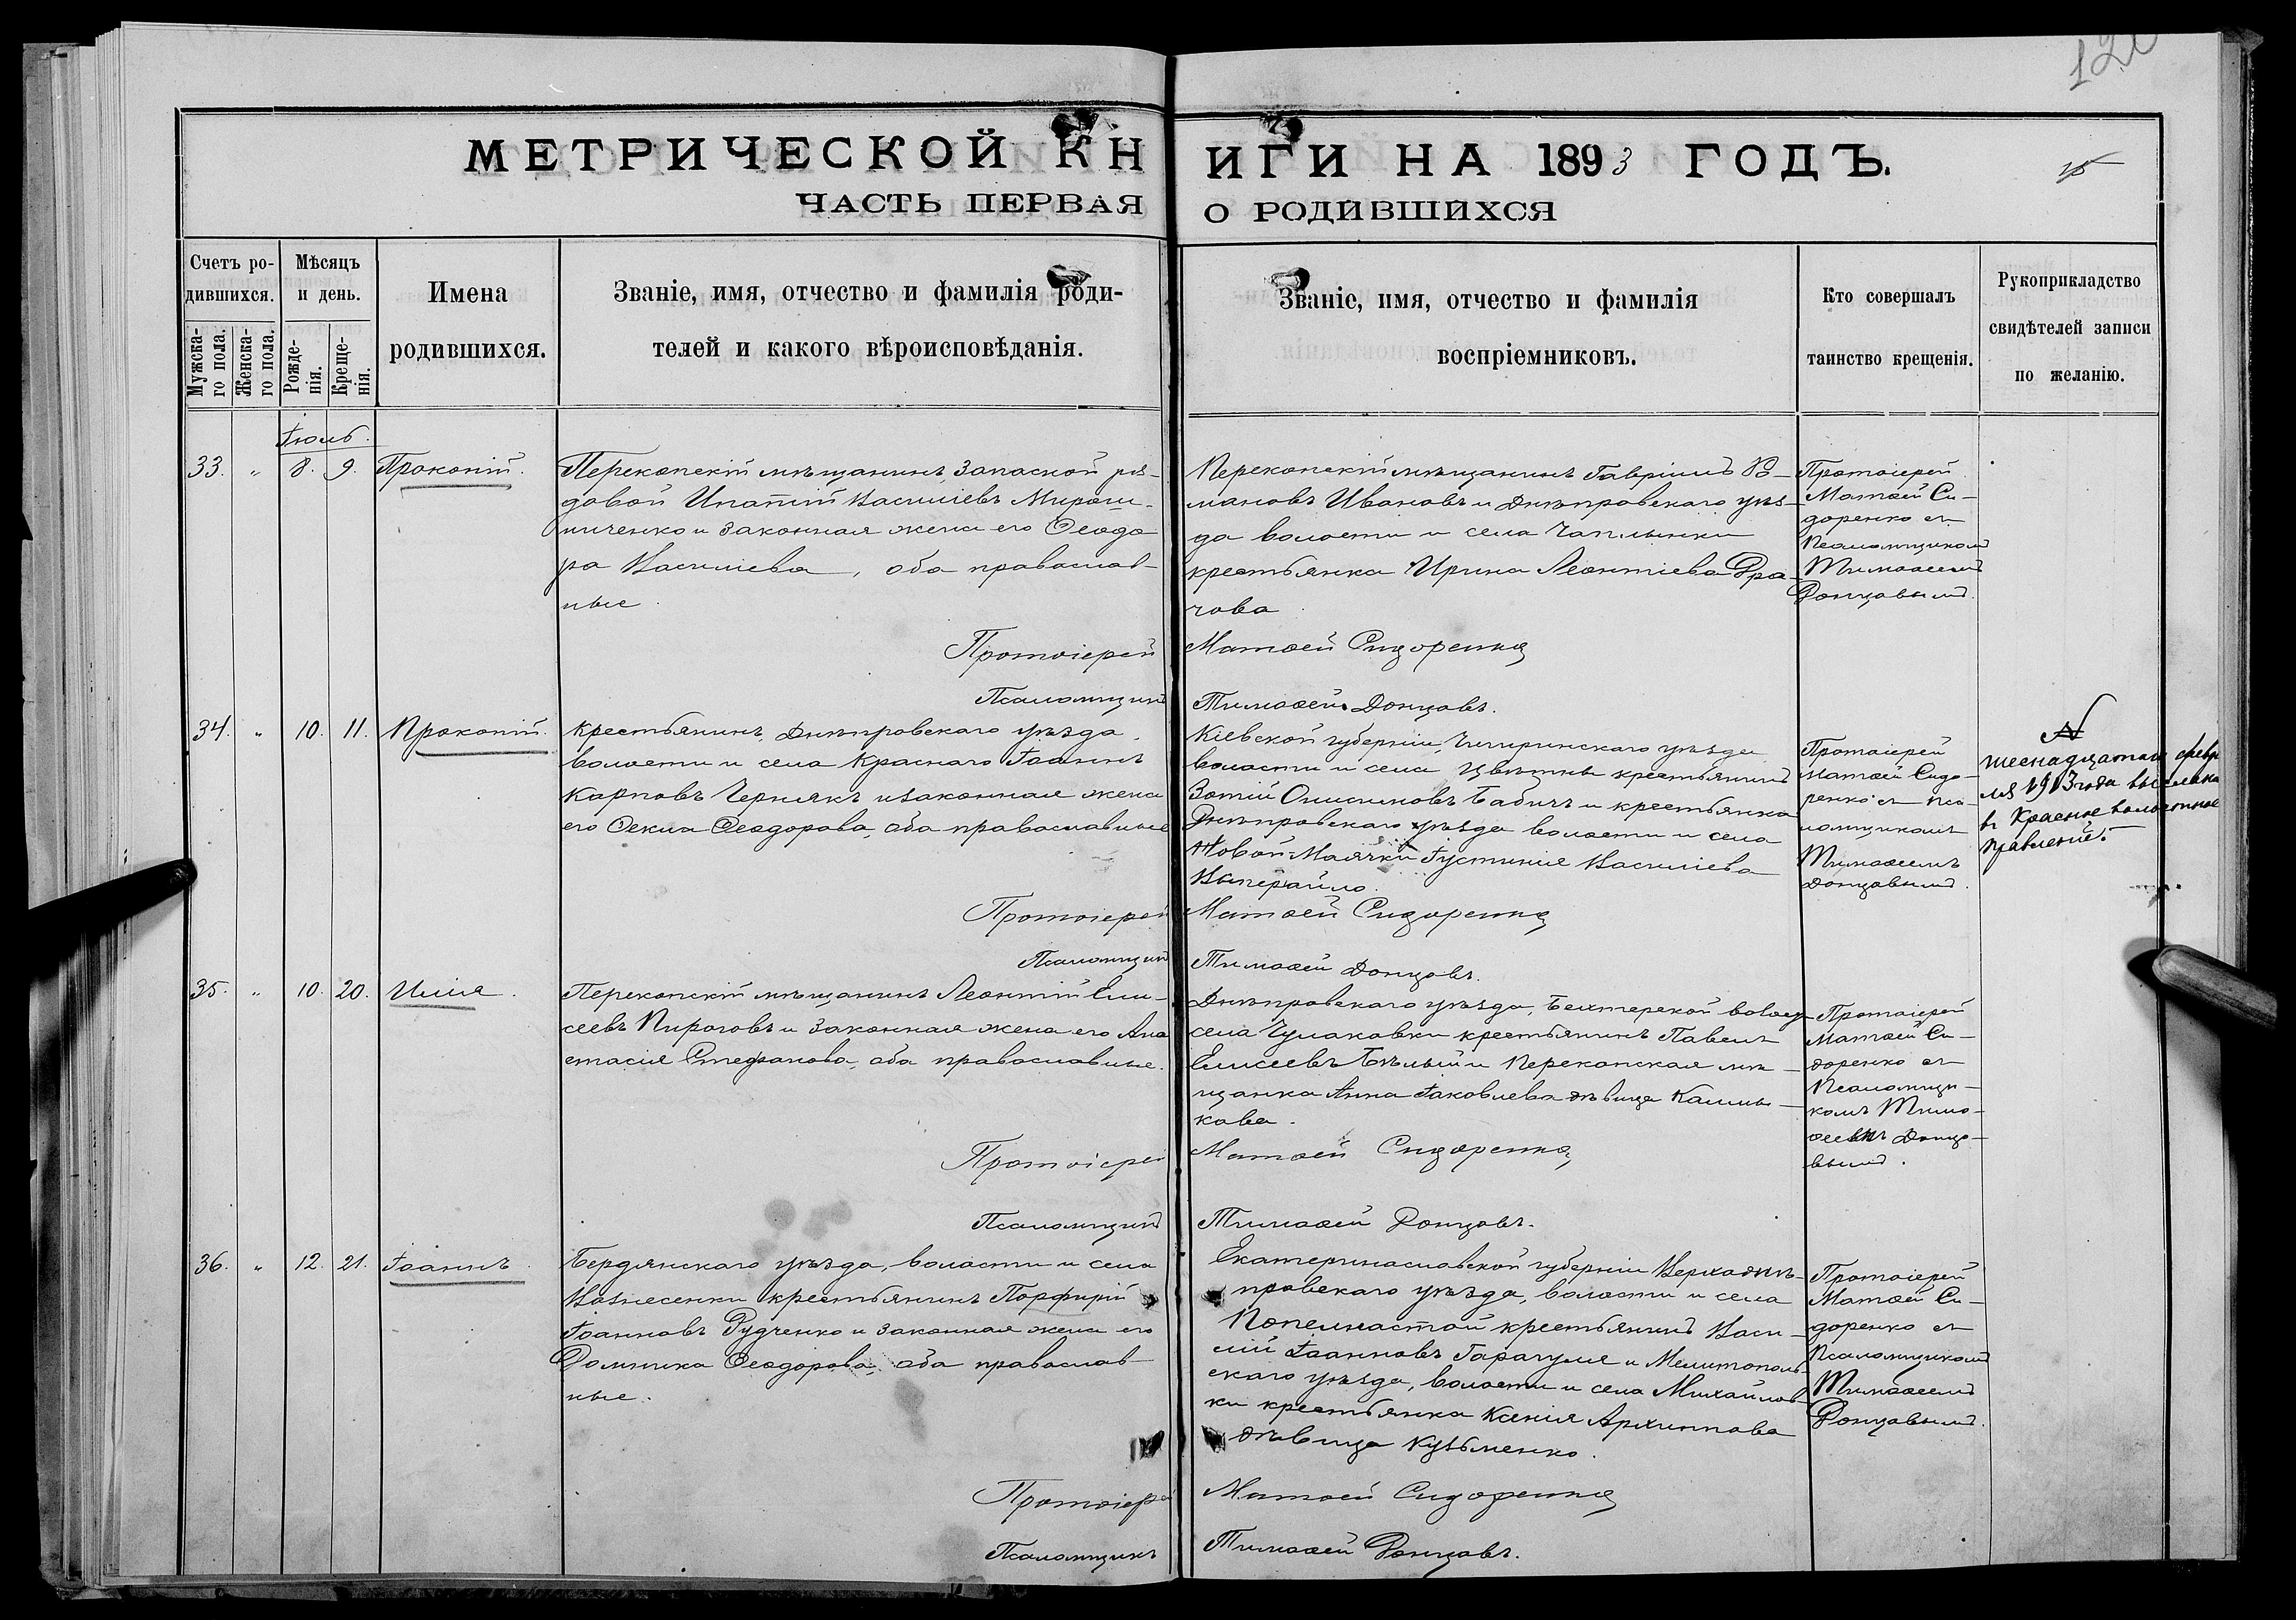 120
МЕТРИЧЕСКОЙ КНИГИ НА 1893 ГОДЪ.
15
ЧАСТЬ ПЕРВАЯ О РОДИВШИХСЯ
Счетъ ро-
дившихся.
Мужска-
го пола.
Женска-
го пола.
Мѣсяцъ
и день.
Рожде-
нія.
Креще-
нія.
Имена
родившихся.
Званіе, имя, отчество и фамилія роди-
телей и какого вѣроисповѣданія.
Званіе, имя, отчество и фамилія
воспріемниковъ.
Кто совершалъ
таинство крещенія.
Рукоприкладство
свидѣтелей записи
по желанію.
Іюль.
33. " 8. 9. Прокопій.
Перекопскій мѣщанинъ, запасной ря-
довой Ипатій Василіевъ Мирош-
ниченко и законная жена его Ѳеодо
ра Василіева, оба православ-
ные.
Перекопскій мѣщанинъ Гавріилъ Ро-
мановъ Ивановъ и Днѣпровскаго уѣз-
да волости и села Чаплынки
крестьянка Ирина Леонтіева Дра-
чова
Протоіерей
Матѳей Си-
доренко съ
Псаломщикомъ
Тимоѳеемъ
Донцовымъ.
Протоіерей Матѳей Сидоренко
Псаломщикъ Тимоѳей Донцовъ.
34. " 10. 11. Прокопій.
Крестьянинъ, Днѣпровскаго уѣзда,
волости и села Краснаго Іоаннъ
Карповъ Чернякъ и законная жена
его Ѳекла Ѳеодорова, оба православные
Кіевской губерніи, Чигиринскаго уѣзда
волости и села Цвѣтны крестьянинъ
Зотій Онисимовъ Бабичъ и крестьянка
Днѣпровскаго уѣзда волости и села
Новой-Маячки Іустинія Василіева
Выперайло.
Протоіерей
Матѳей Сидо-
ренко съ пса-
ломщикомъ
Тимоѳеемъ
Донцовымъ.
шеснадцатаго февра
ля 1913 года выслана
въ Красное волостное
правленіе.
Протоіерей Матѳей Сидоренко
Псаломщикъ Тимоѳей Донцовъ.
35. " 10. 20. Илія.
Перекопскій мѣщанинъ Леонтій Ели-
сеевъ Пироговъ и законная жена его Ана
стасія Стефанова, оба православные.
Днѣпровскаго уѣзда, Бехтерской волост
села Чулаковки крестьянинъ Павелъ
Елисеевъ Бѣлый и Перекопская мѣ-
щанка Анна Іаковлева дѣвица Калмы-
кова.
Протоіерей
Матѳей Си-
доренко съ
Псаломщи-
комъ Тимо-
ѳеемъ Донцо-
вымъ.
Протоіерей Матѳей Сидоренко
Псаломщикъ Тимоѳей Донцовъ.
36. " 12. 21. Іоаннъ.
Бердянскаго уѣзда, волости и села
Вознесенки крестьянинъ Порфирій
Іоанновъ Рудченко и законная жена его
Домника Ѳеодорова, оба православ-
ные.
Екатеринославской губерніи Верходнѣ-
провскаго уѣзда, волости и села
Попелнастой крестьянинъ Васи-
лій Іоанновъ Гарагуля и Мелитополь-
скаго уѣзда, волости и села Михайлов-
ки крестьянка Ксенія Архиппова
дѣвица Кузьменко.
Протоіерей
Матѳей Си-
доренко съ
Псаломщикомъ
Тимоѳеемъ
Донцовымъ.
Протоіерей Матѳей Сидоренко
Псаломщикъ Тимоѳей Донцовъ.